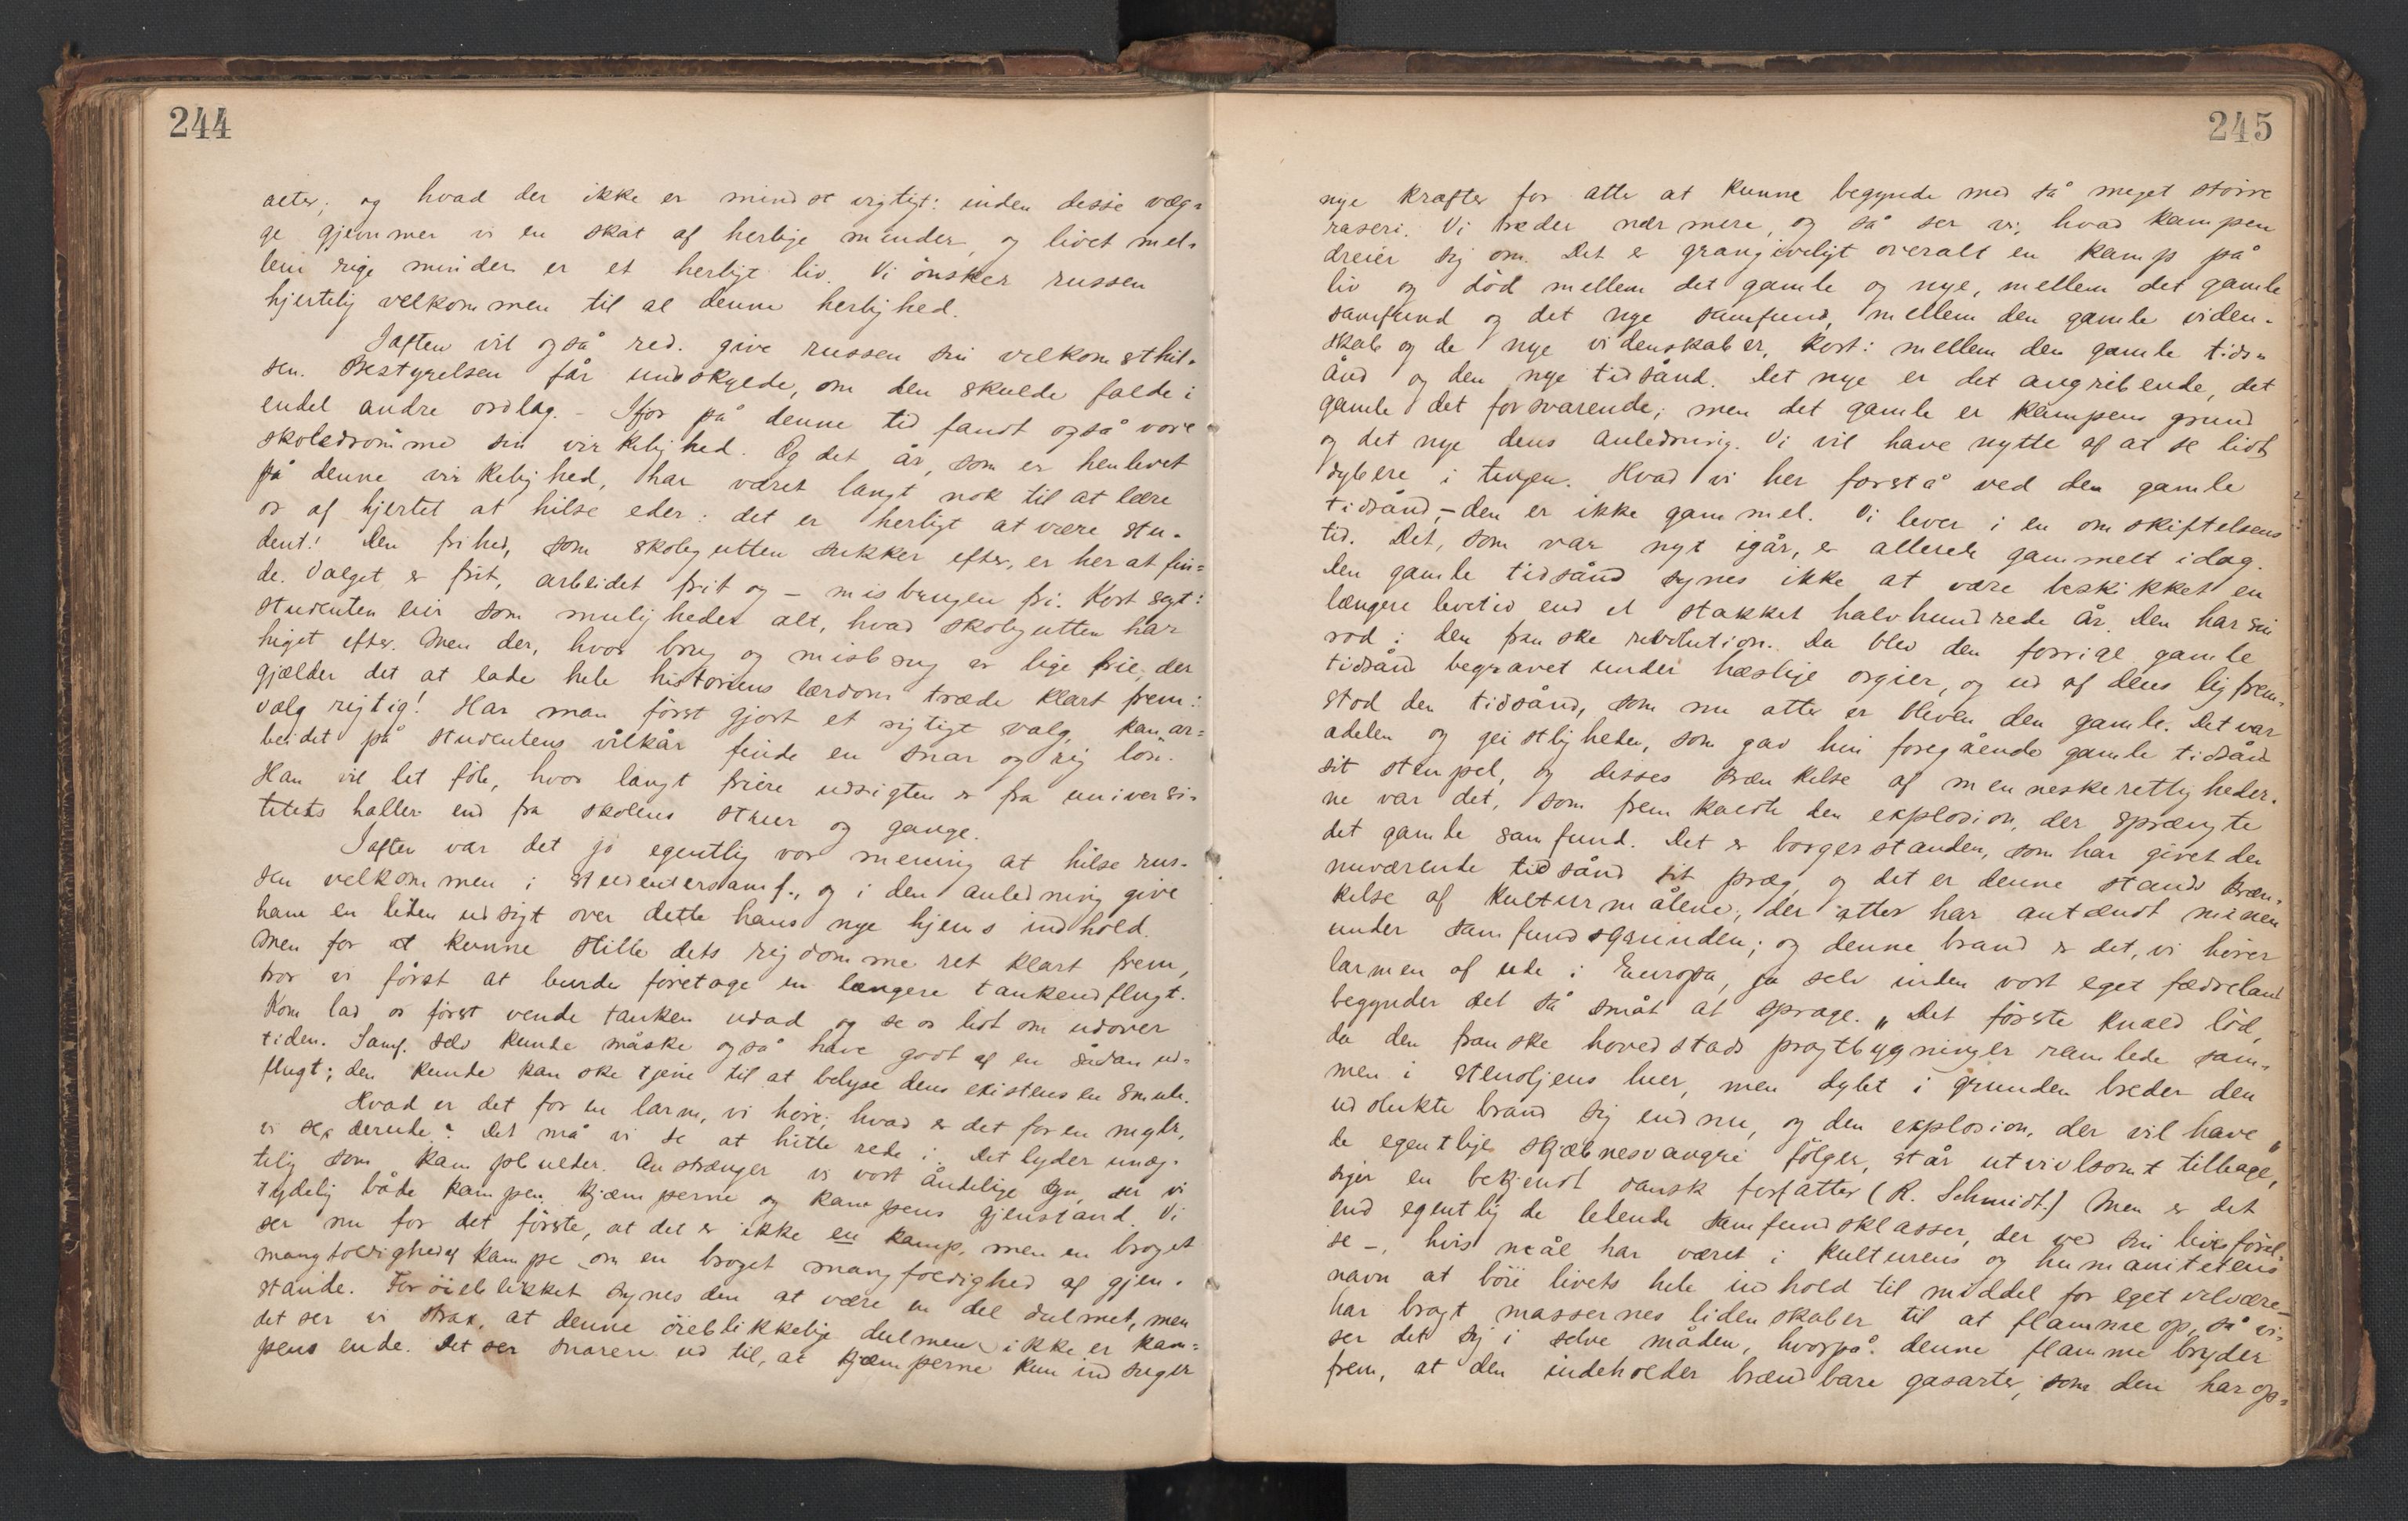 244
acter; og hvad der ikke er mindst vigtigt: inden disse væg-
ge gjemmer vi en skat af herlige minder, og livet mel-
lem rige minder er et herligt liv. Vi ønsker russen
hjertelig velkommen til al denne herlighed.
Iaften vil også red. give russen sin velkomsthil-
sen. Bestyrelsen får undskylde, om den skulde falde i
endel andre ordlag. – Ifjor på denne tid fandt også vore
skoledrømme sin virkelighed. Og det år, som er henlevet
på denne virkelighed, har været langt nok til at lære
os af hjertet at hilse eder: det er herligt at være stu-
dent! Den frihed, som skolegutten sukker efter, er her at fin-
de. Valget er frit, arbeidet frit og – misbrugen fri. Kort sagt:
studenten eier som muligheder alt, hvad skolegutten har
higet efter. Men der, hvor brug og misbrug er lige frie, der
gjælder det at lade hele historiens lærdom træde klart frem:
vælg rigtig! Har man først gjort et rigtigt valg, kan ar-
beidet på studentens vilkår finde en snar og rig løn.
Han vil let føle, hvor langt friere udsigten er fra universi-
tetets haller end fra skolens stuer og gange.
Iaften var det jo egentlig vor mening at hilse rus-
sen velkommen i studentersamf., og i den anledning give
ham en liden udsigt over dette hans nye hjems indhold.
Men for at kunne stille dets rigdomme ret klart frem,
tror vi først at burde foretage en længere tankeudflugt.
Kom lad os først vende tanken udad og se os lidt om udover
tiden. Samf. selv kunde måske også have godt af en sådan ud-
flugt; den kunde kanske tjene til at belyse dens existens en smule.
Hvad er det for en larm, vi hører; hvad er det for en røgly,
vi ser derude? Det må vi se at hitte rede i. Det lyder unæg-
telig som kampbulder. Anstrænger vi vort åndelige syn, ser vi
tydelig både kampen, kjæmperne og kampens gjenstand. Vi
ser nu for det første, at det er ikke en kamp, men en broget
mangfoldighed af kampe om en broget mangfoldighed af gjen-
stande. For øieblikket synes den at være en del dulmet, men
det ser vi strax, at denne øieblikkelige dulmen ikke er kam-
pens ende. Det ser snarere ud til, at kjæmperne kun indsuger
245
nye kræfter for atter at kunne begynde med så meget større
raseri. Vi træder nærmere, og så ser vi, hvad kampen
dreier sig om. Det er grangiveligt overalt en kamp på
liv og død mellem det gamle og nye, mellem det gamle
samfund og det nye samfund, mellem den gamle viden-
skab og de nye videnskaber, kort: mellem den gamle tids-
ånd og den nye tidsånd. Det nye er det angribende, det
gamle det forsvarende; men det gamle er kampens grund
og det nye dens anledning. Vi vil have nytte af at se lidt
dybere i tingen. Hvad vi her forstå ved den gamle
tidsånd, – den er ikke gammel. Vi lever i en omskiftelsens
tid. Det, som var nyt igår, er allerede gammelt idag.
Den gamle tidsånd synes ikke at være beskikket en
længere levetid end et stakket halvhundrede år. Den har sin
rod i den franske revolution. Da blev den forrige gamle
tidsånd begravet under hæslige orgier, og ud af dens lig frem-
stod den tidsånd, som nu atter er bleven den gamle. Det var
adelen og geistligheden, som gav hin foregående gamle tidsånd
sit stempel, og disses krænkelse af menneskerettigheder-
ne var det, som fremkaldte den explosion, der sprængte
det gamle samfund. Det er borgerstanden, som har givet den
nuværende tidsånd sit præg, og det er denne stands kræn-
kelse af kulturmålene, der atter har antændt minen
under samfundsgrunden; og denne brand er det, vi hører
larmen af ude i Europa, ja selv inden vort eget fædreland
begynder det så småt at sprage. „Det første knald lød,
da den franske hovedstads pragtbygninger ramlede sam-
men i stenoljens luer, men dybt i grunden breder den
udslukte brand sig endnu, og den explosion, der vil have
de egentlige skjæbnesvangre følger, står utvivlsomt tilbage,"
siger en bekjendt dansk forfatter (R. Schmidt.) Men er det
end egentlig de lebende samfundsklasser, der ved sin livsførel-
se –, hvis mål har været i kulturens og humanitetens
navn at bøie livets hele indhold til middel for eget velvære –
har bragt massernes lidenskaber til at flamme op, så vi-
ser det sig i selve måden, hvorpå denne flamme bryder
frem, at den indeholder brændbare gasarter, som den har op-